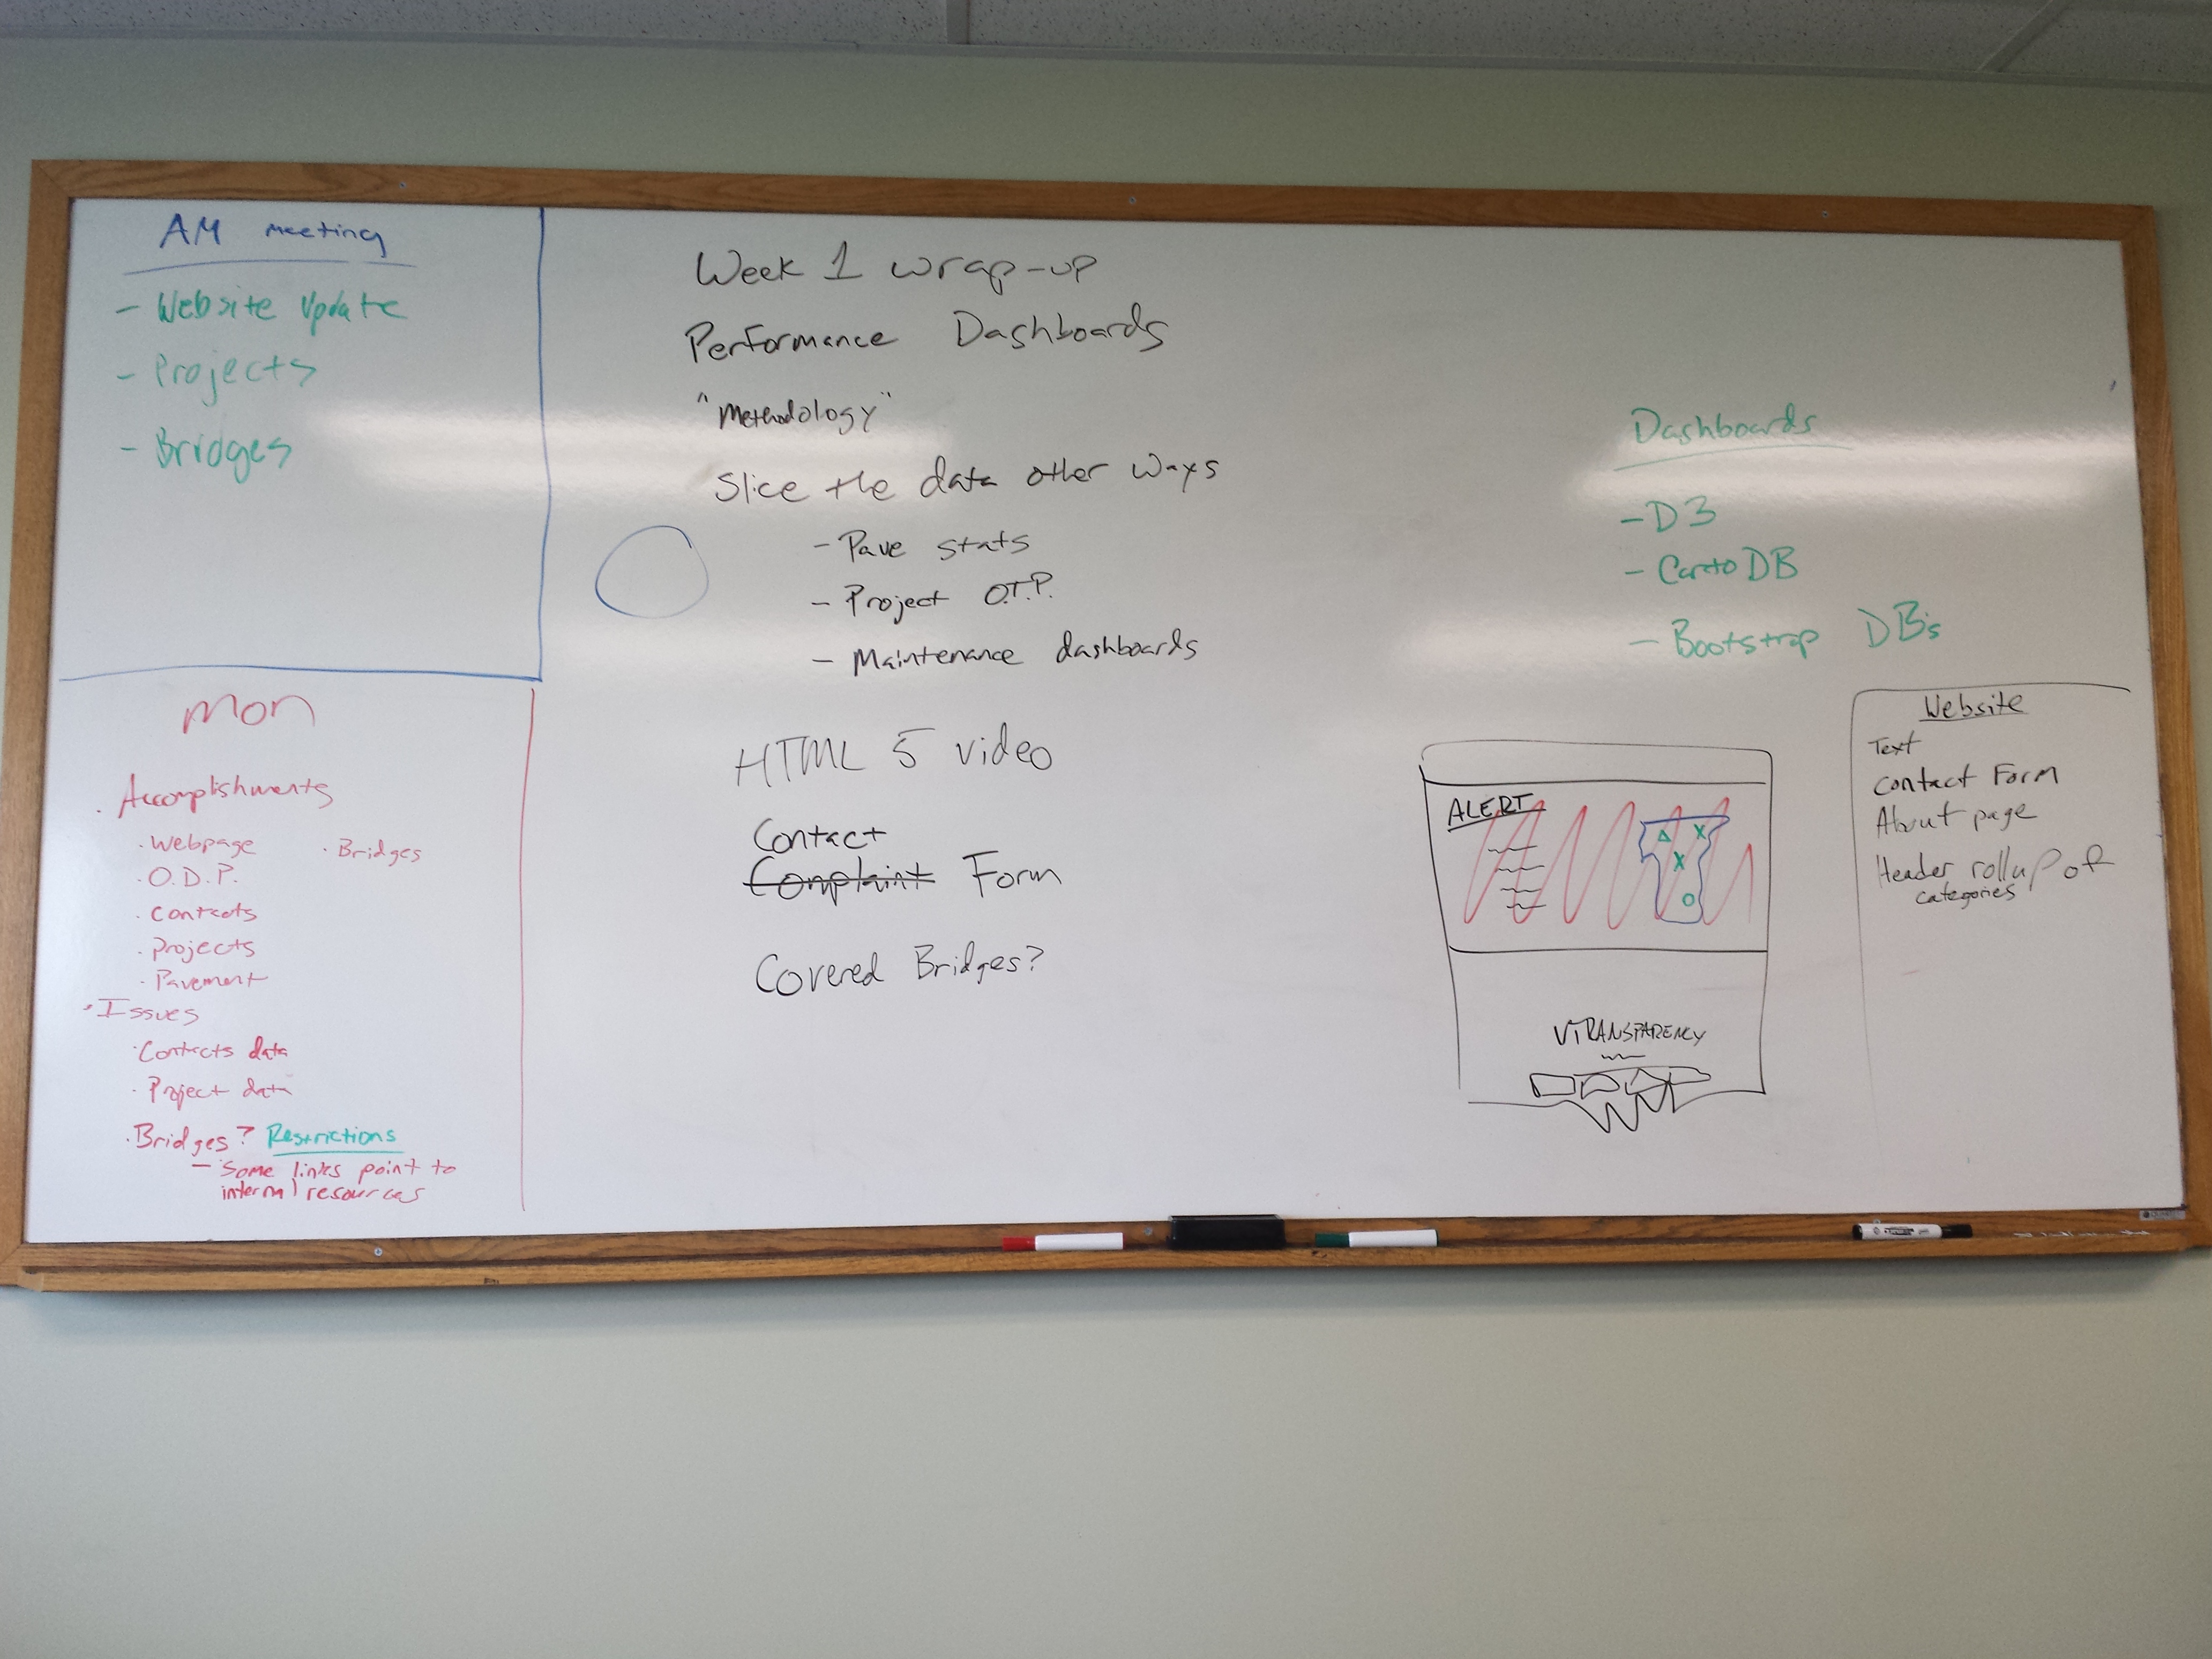 AM meeting
- Website Update
- Projects
- Bridges
mon
. Accomplishments
. Webpage . Bridges
. O.D.P.
. Contracts
. Projects
. Pavement
. Issues
. Contracts data
. Project data
. Bridges? Restrictions
- Some links point to
internal resources
Week 1 wrap-up
Performance Dashboards
"Methodology"
Slice the data other ways
- Pave stats
- Project O.T.P.
- Maintenance dashboards
HTML 5 video
Contact
Complaint Form
Covered Bridges?
Dashboards
- D3
- CartoDB
- Bootstrap DB's
ALERT
VTRANSPARENCY
Website
Text
Contact Form
About page
Header rollup of
categories